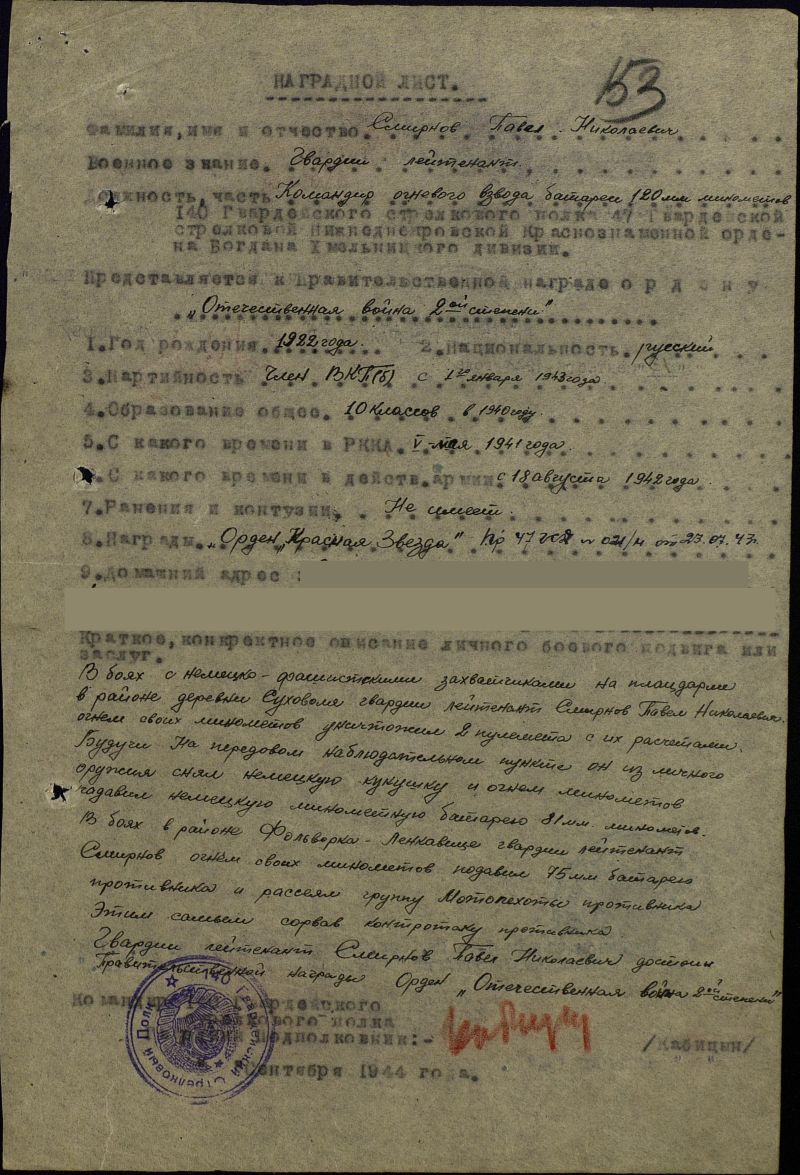 153
НАГРАДНОЙ ЛИСТ.
Фамилия, имя и отчество Смирнов Павел Николаевич
Военное звание. Гвардии лейтенант
Должность, часть Командир огневого взвода батареи 120 мм минометов
140 Гвардейского стрелкового полка 47 Гвардейской
стрелковой Нижнеднепровской Краснознаменной орде-
на Богдана Хмельницкого дивизии.
Представляется к Правительственной награде о р д е н у
„Отечественная война 2ой степени"
1. Год рождения 1922 года. 2. Национальность русский
3. Партийность Член ВКП(б) с января 1943 года
4. Образование общее. 10 классов в 1940 году.
5. С какого времени в РККА. V-мая 1941 года.
6. С какого времени в действ. армии с 18 августа 1942 года.
7. Ранения и контузии, Не имеет.
8. Награды „Орден „Красная Звезда" пр 47 гсд от 23.07.43г
9. Домашний адрес :
Краткое, конкретное описание личного боевого подвига или
заслуг.
В боях с немецко-фашисткими захватчиками на плацдарме
в районе деревни Суховоля гвардии лейтенант Смирнов Павел Николаевич
огнем своих минометов уничтожил 2 пулемета с их расчетами.
Будучи На передовом наблюдательном пункте он из личного
оружия снял немецкую кукушку и огнем минометов
подавил немецкую минометную батарею 81 мм. минометов.
В боях в районе Фольворка-Ленкавице гвардии лейтенант
Смирнов огнем своих минометов подавил 75 мм батарею
противника и рассеял группу Мотопехоты противника
Этим самым сорвав контротаку противника
Гвардии лейтенант Смирнов Павел Николаевич достоин
Правительственной награды Орден „Отечественная война 2ой степени"
Командир Гвардейского
полка
Подполковник:- /Кабицын/
сентября 1944 года.
140 Гвардейский Стрелковый Полк